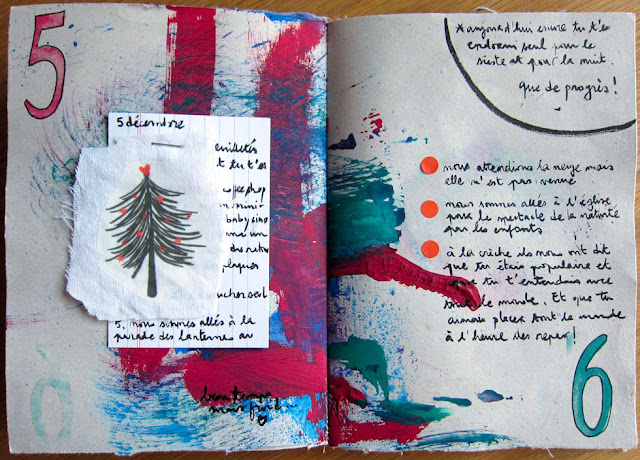 5
5 décembre
euilletés
t tu t'es
coffee shop
mini-
baby cino
me un
plaques
coucher seul
5, nous sommes allés à la
parade des lanternes au
beau temps
mais froid
* aujourd'hui encore tu t'es
endormi seul pour la
sieste et pour la nuit.
que de progrès !
nous attendions la neige mais
elle n'est pas venue
nous sommes allés à l'église
pour le spectacle de la nativité
par les enfants
à la crèche ils nous ont dit
que tu étais populaire et
que tu t'entendais avec
tout le monde. Et que tu
aimais placer tout le monde
à l'heure des repas !
6